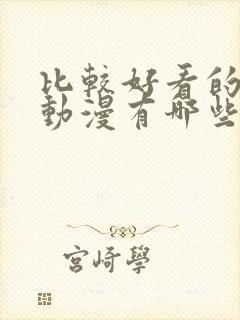 比較好看的
動漫有哪些
宮崎學